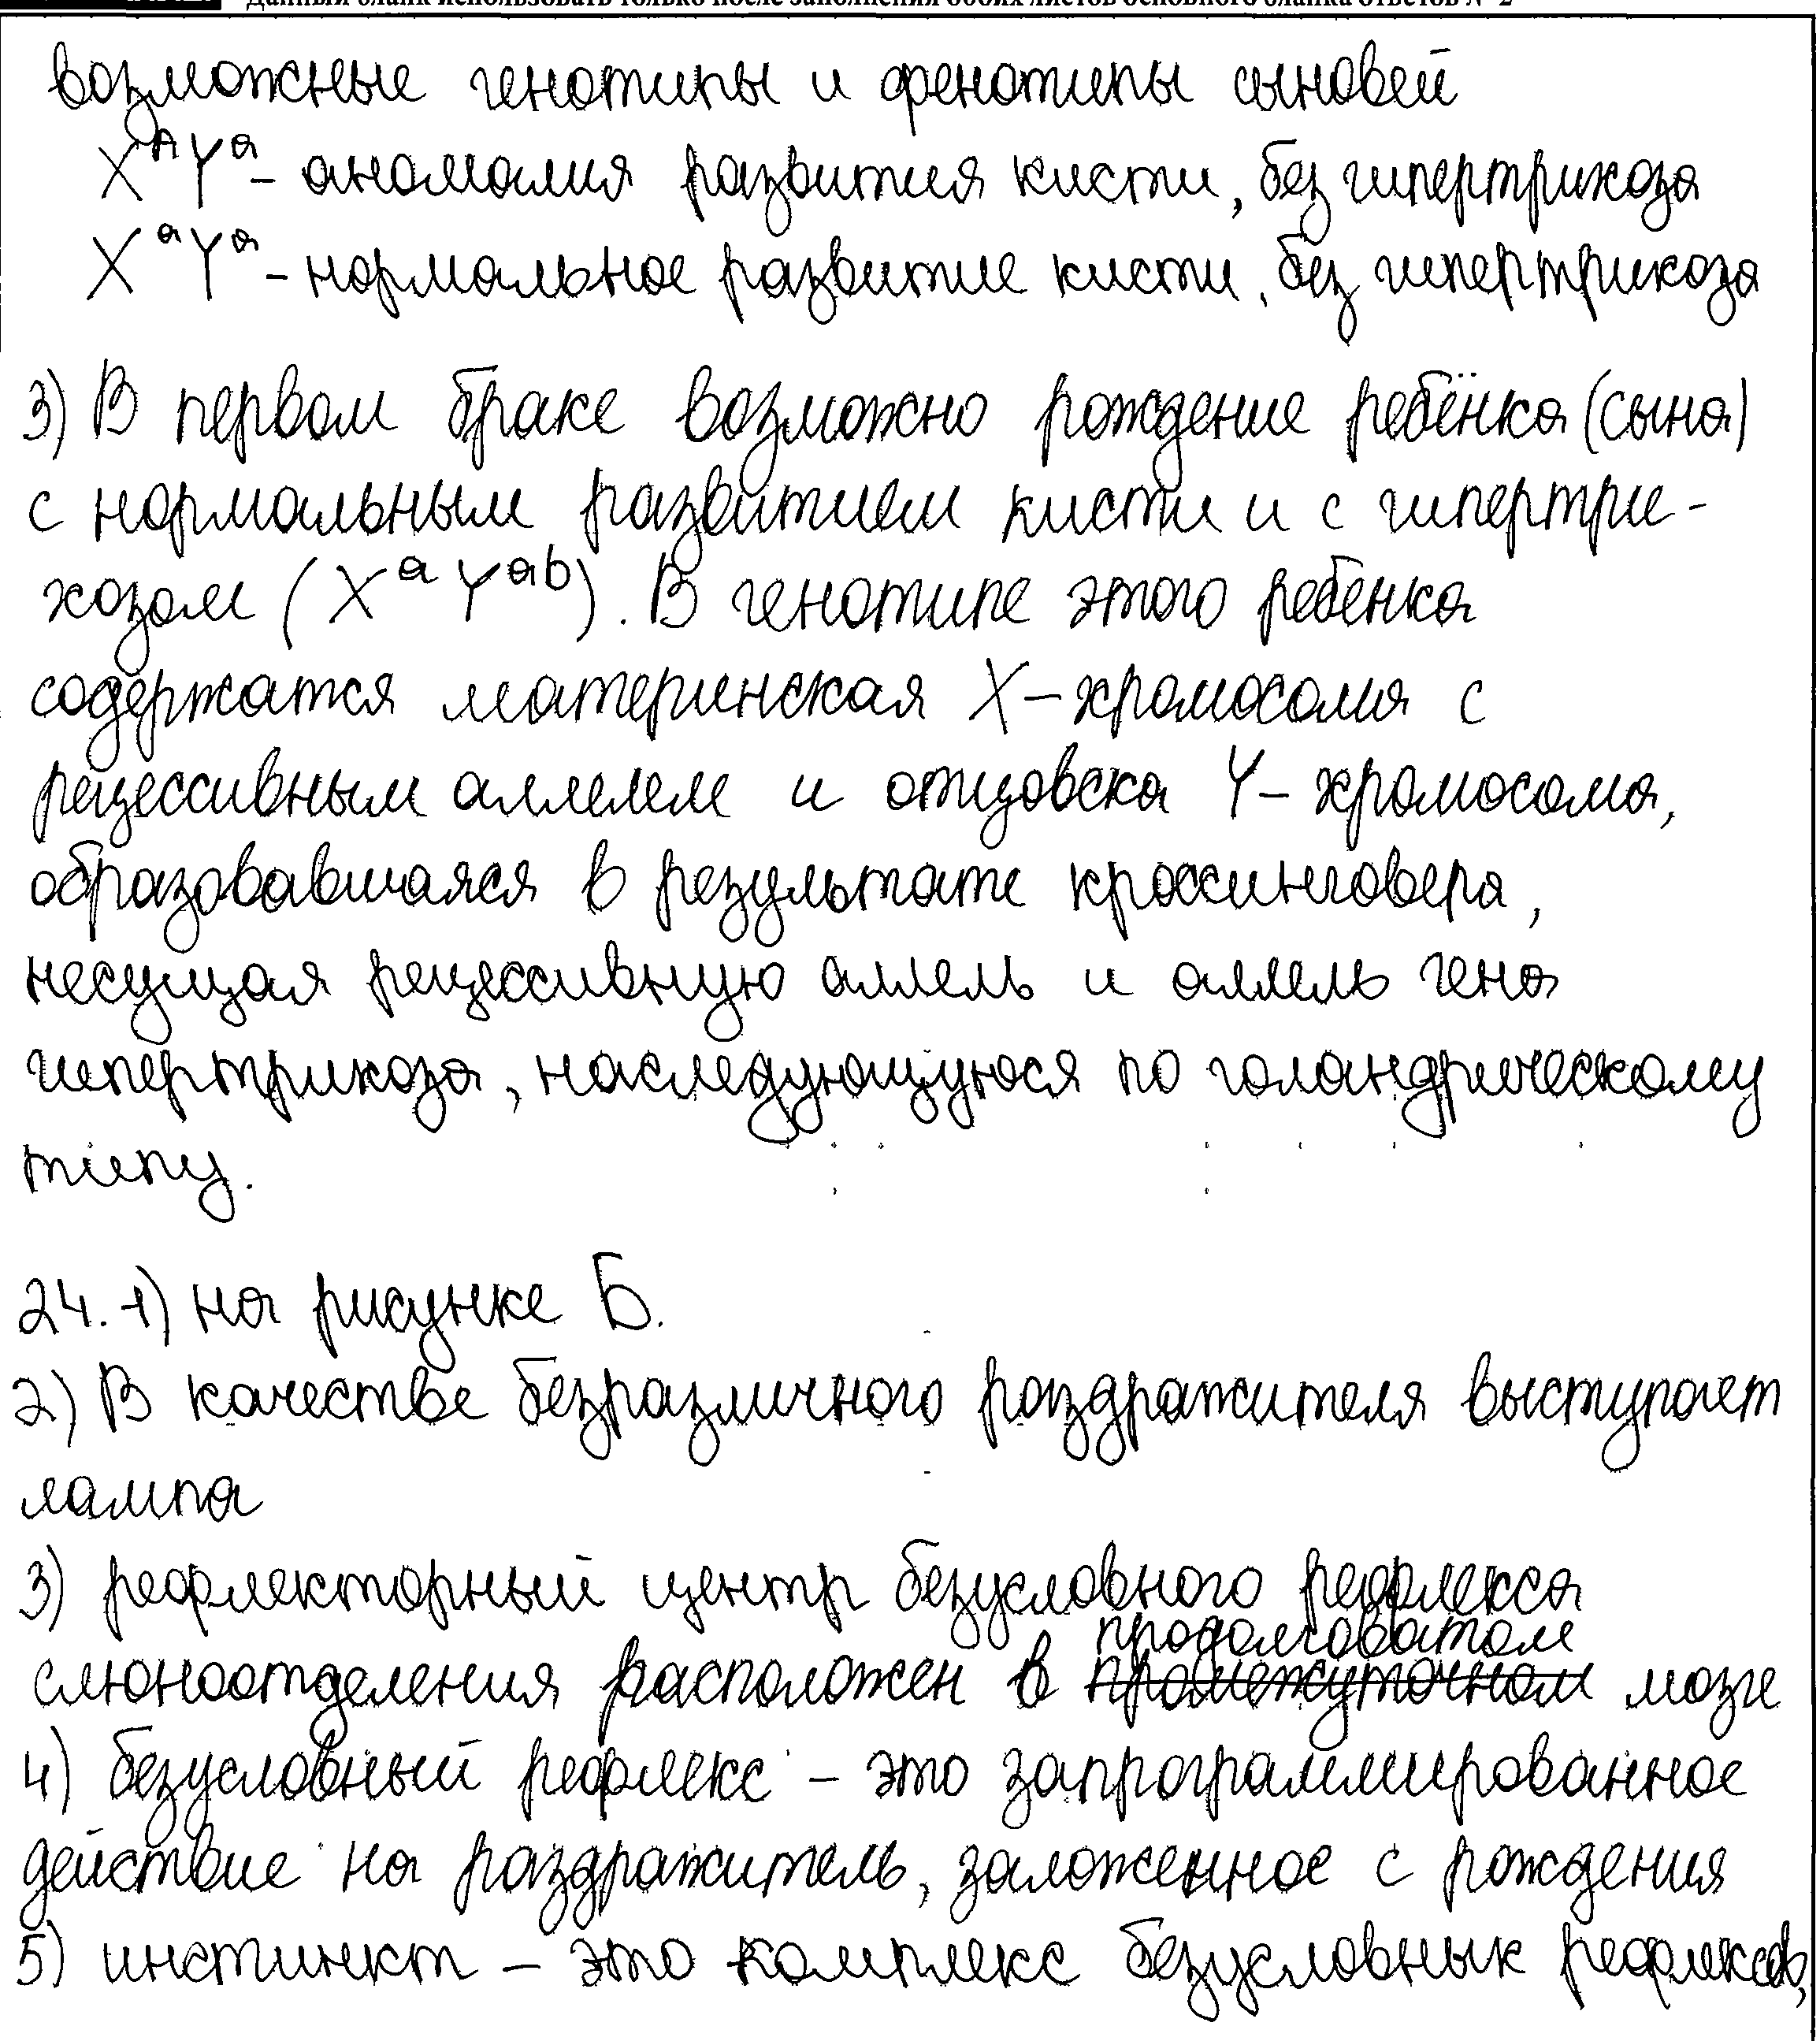 Данный бланк использовать только после заполнения обоих листов основного бланка ответов № 2
возможные генотипы и фенотипы сыновей
XᴬYᵃ - аномалия развития кисти, без гипертрихоза
XᵃYᵃ - нормальное развитие кисти, без гипертрихоза
3) В первом браке возможно рождение ребёнка (сына)
с нормальным развитием кисти и с гипертри-
хозом (XᵃYᵃᵇ). В генотипе этого ребенка
содержатся материнская X-хромосома с
рецессивным аллелем и отцовска Y-хромосома,
образовавшаяся в результате кроссинговера,
несущая рецессивную аллель и аллель гена
гипертрихоза, наследующуюся по голандрическому
типу.
24. 1) на рисунке Б.
2) В качестве безразличного раздражителя выступает
лампа
3) рефлекторный центр безусловного рефлекса
слюноотделения расположен в продолговатом промежуточном мозге
4) безусловный рефлекс - это запрограммированное
действие на раздражитель, заложенное с рождения
5) инстинкт - это комплекс безусловных рефлексов,